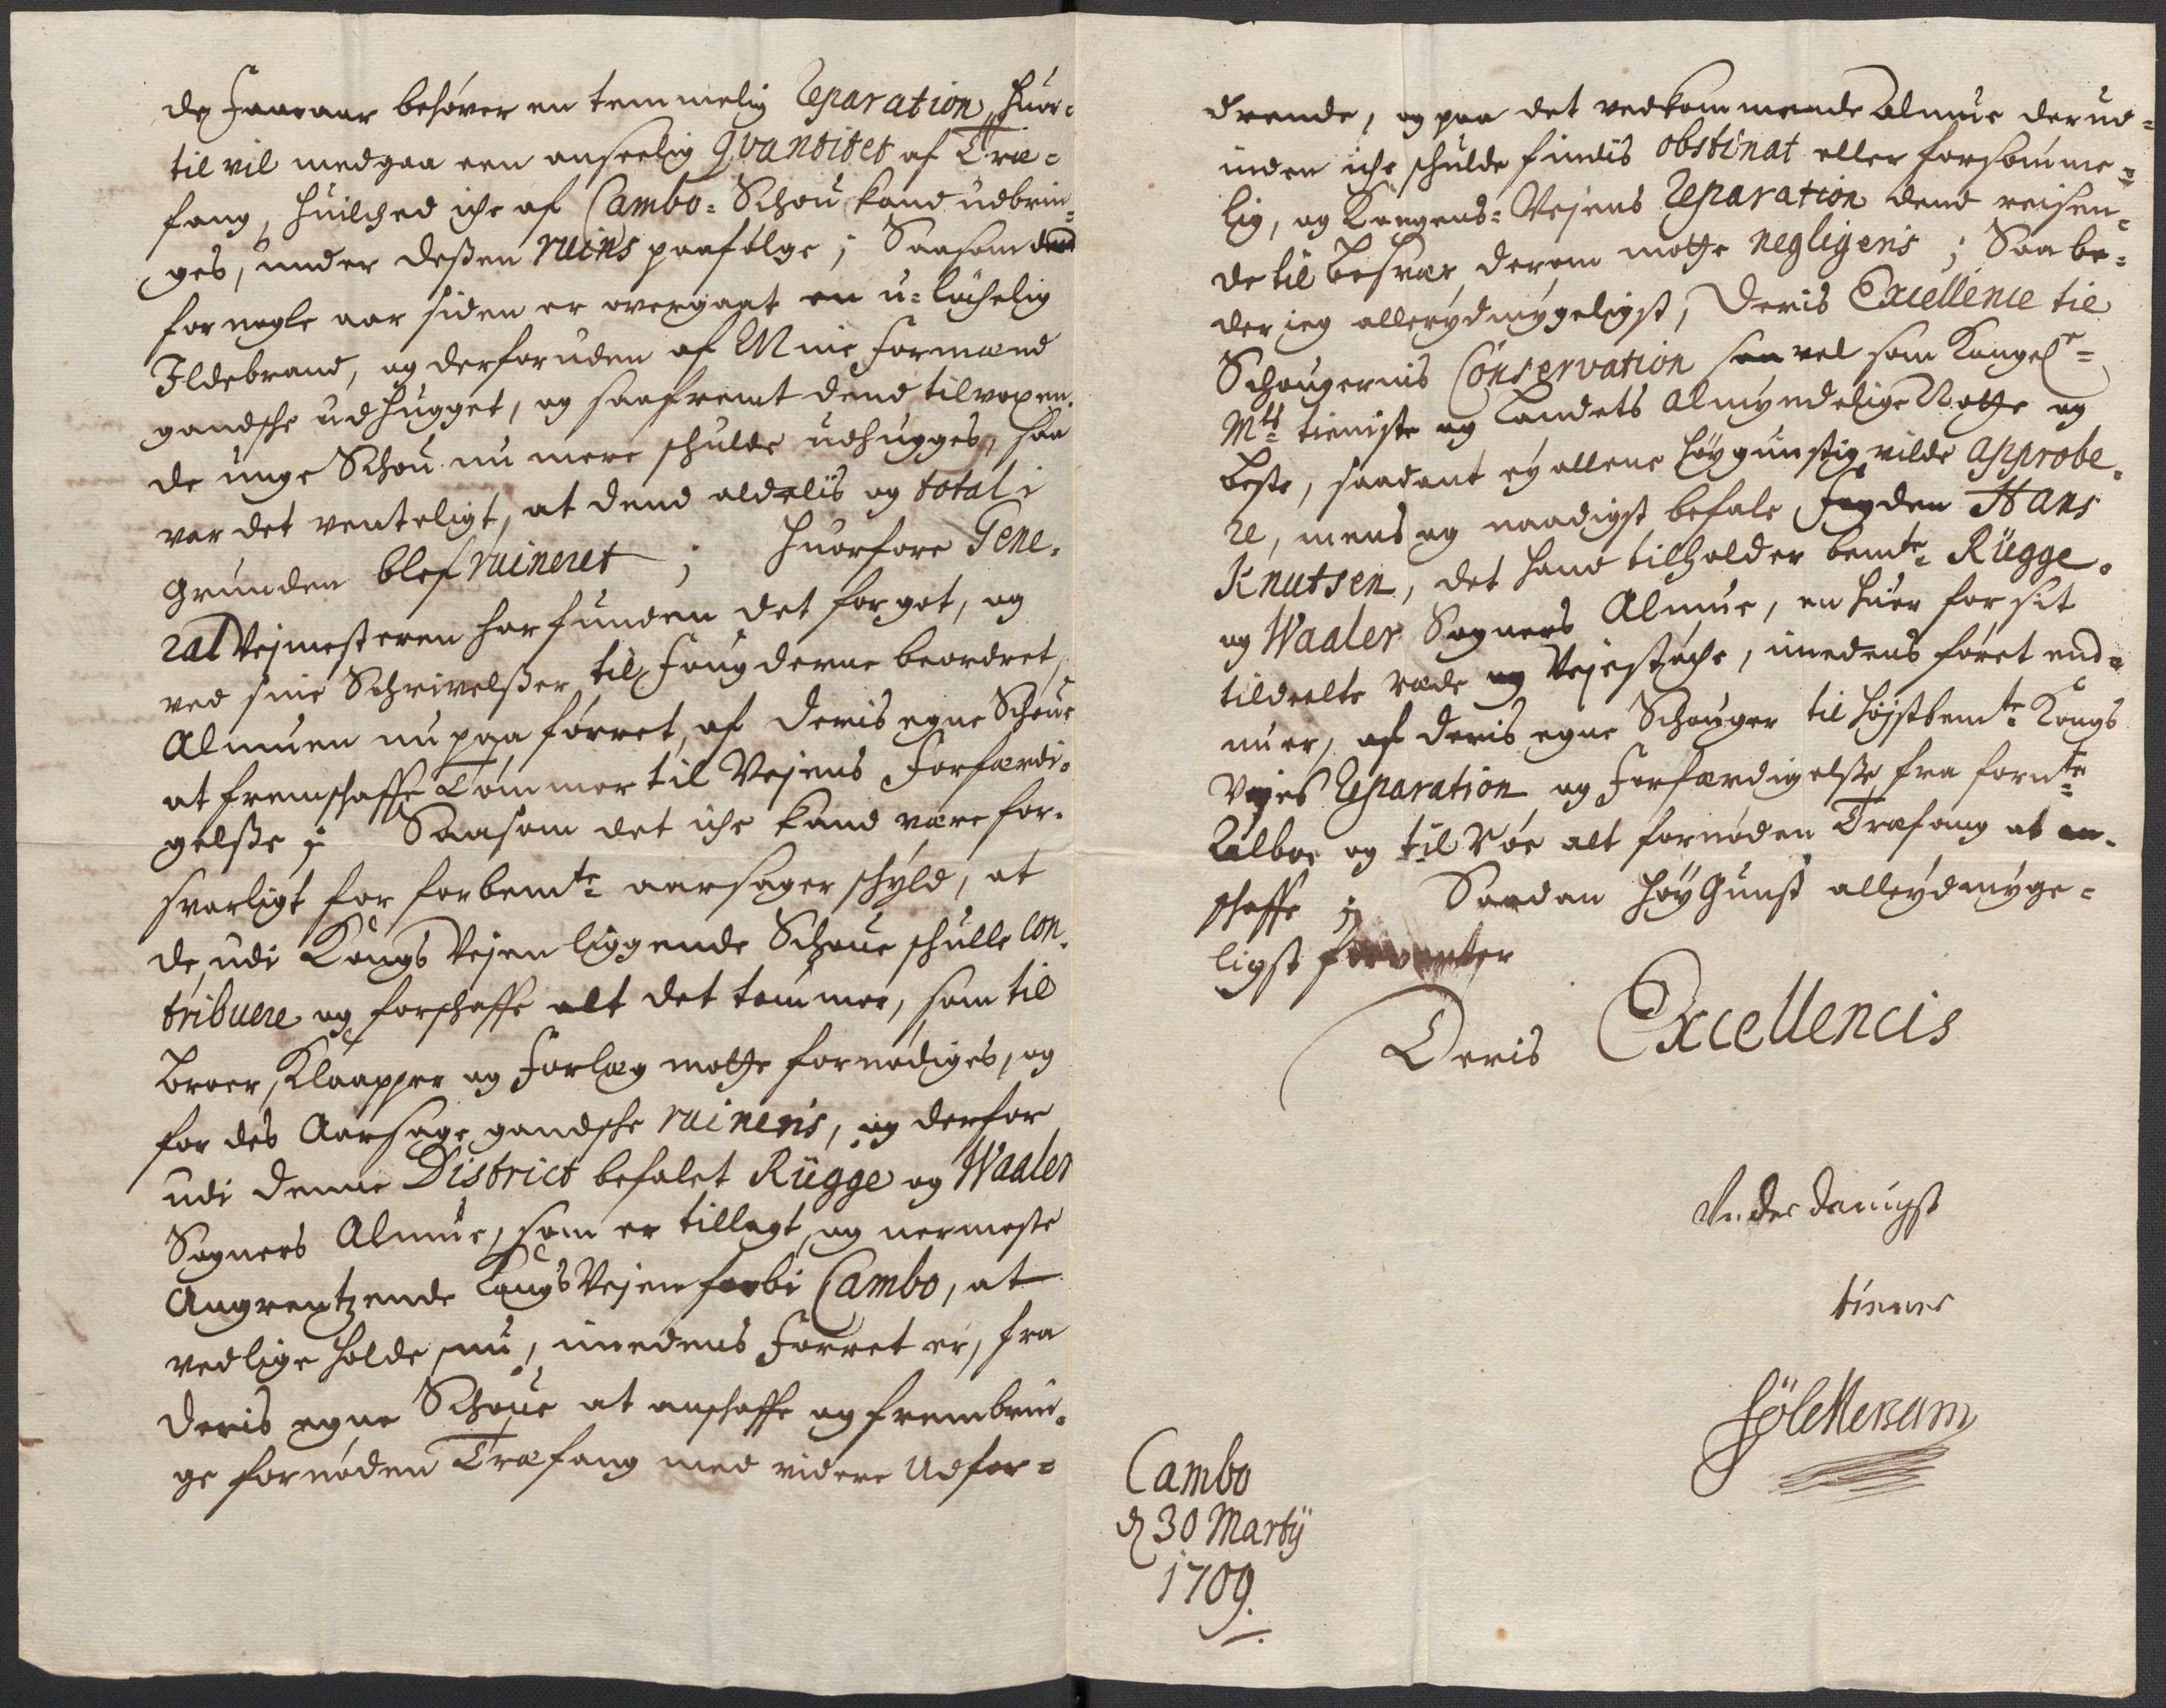 behøver en temmelig Reparation, huor-
til vil medgaa een anseelig qvantitet af Træ-
fang, huilched iche af Cambo-Schou kand udbrin-
ges, under dessen ruins paafølge; Saasom dend
for nogle aar siden er overgaaet en u-lychelig
Ildebrand, og derforuden af Mine Formænd
gandsche udhugget, og saafremt dend tilvoxen-
de unge Schou nu mere schulde udhugges, saa
var det venteligt, at dend aldelis og total i
Grunden blef ruineret; Huorfore Gene-
ral Vejmesteren har funden det for got, og
ved sine Schrivelsser til Fougderne beordret,
Almuen nu paa førret, af deris egne Schoue
at fremschaffe Tømmer til Vejens Forfærdi-
gelsse; Saasom det iche kand være for-
svarligt for forbemte aarsager schyld, at
de udi Kongs Vejen liggende Schoue schulle con-
tribuere og forschaffe alt det tømmer, som til
Broer, Klaapper og Forlæg motte fornødiges, og
for des Aarsage gandsche ruineris, og derfor
udi denne District befalet Rügge og Waaler
Sogners Almue, som er tillagt og nermeste
Angrentzende Kongs Vejen forbi Cambo, at
vedlige holde, nu, imedens Førret er, fra
deris egne Schoue at anschaffe og frembrin-
ge fornøden Træfang med videre Udfor-
drende, og paa det vedkommende Almue derud-
inden iche schulde findis obstinat eller forsømme-
lig, og Kongens-Vejens Reparation dend reisen-
de til Besvær derom motte negligeris; Saa be-
der jeg allerydmygeligst, Deris Excellence til
Schougernis Conservation saa vel som Kongel-
Mts tieniste og Landets Almyndelige Notte og
Beste, saadant ey allene høygunstig vilde approbe-
re, mens og naadigst befale Fogden Hans
Knutsen, det hand tilholder bemte Rügge-
og Waaler Sogners Almue, en huer for sit
tildeelte Rode og Vejestøche, imedens føret end-
nu er, af deris egne Schouger til højstbemte Kongs
Vejes Reparation og Forfærdigelsse fra fornte
og til Roe alt fornøden Træfang at an-
schaffe; Saadan høy Gunst allerydmyge-
ligst forventer
Deris Excellencis
Underdanigst
tienner
Cambo
d 30 Martij
1709.